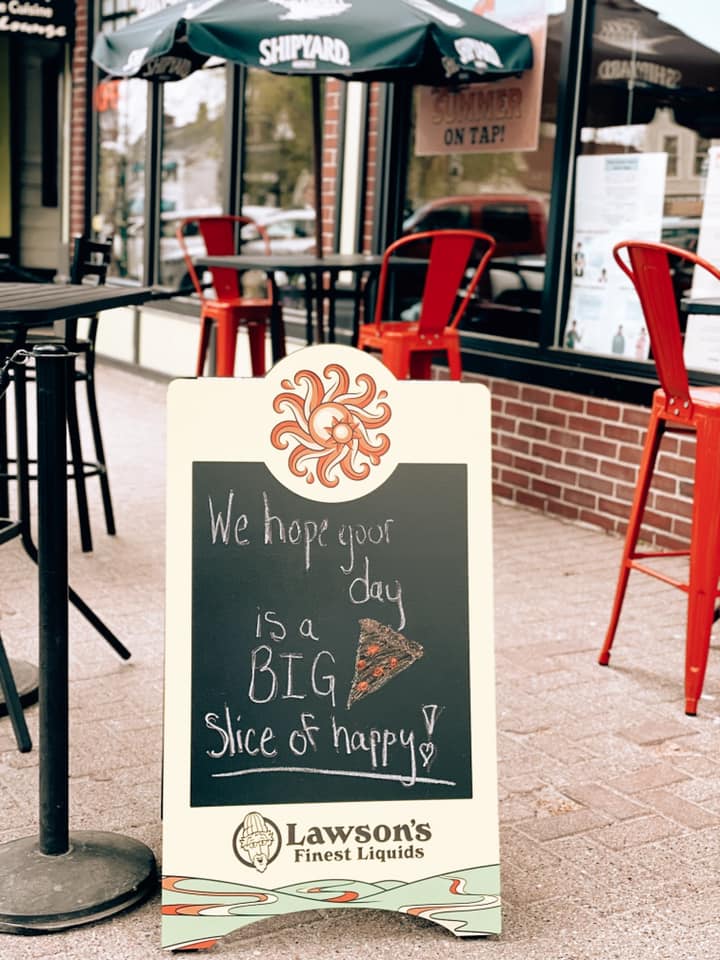 Cuisine
SHIPYARD
SHIPYARD
SUMMER
ON TAP!
We hope your
day
is a
BIG
Slice of happy!
Lawson's
Finest Liquids